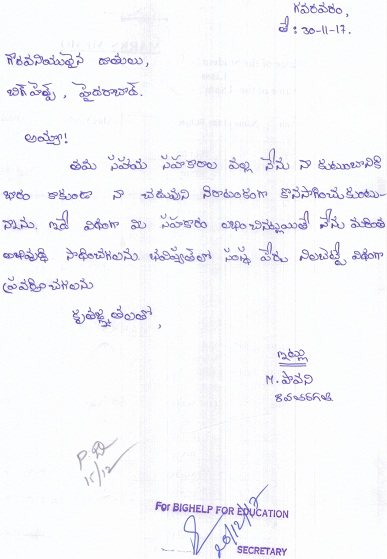 గవరవరం,
తే: 30-11-17.
గౌరవనీయులైన దాతలు,
బిగ్ హెల్ప్, హైదరాబాద్.
అయ్యా!
తమ సహాయ సహకారాల వల్ల నేను నా కుటుంబానికి
భారం కాకుండా నా చదువుని నిరాటంకంగా కొనసాగించుకుంటు-
న్నాను. ఇదే విధంగా మీ సహకారం లభించినట్లయితే నేను మరింత
అభివృద్ధి సాధించగలను. భవిష్యత్ లో సంస్థ పేరు నిలబెట్టే విధంగా
ప్రవర్తించగలను
కృతజ్ఞతలతో,
ఇట్లు
M. పావని
15/12
For BIGHELP FOR EDUCATION
20/12/17
SECRETARY